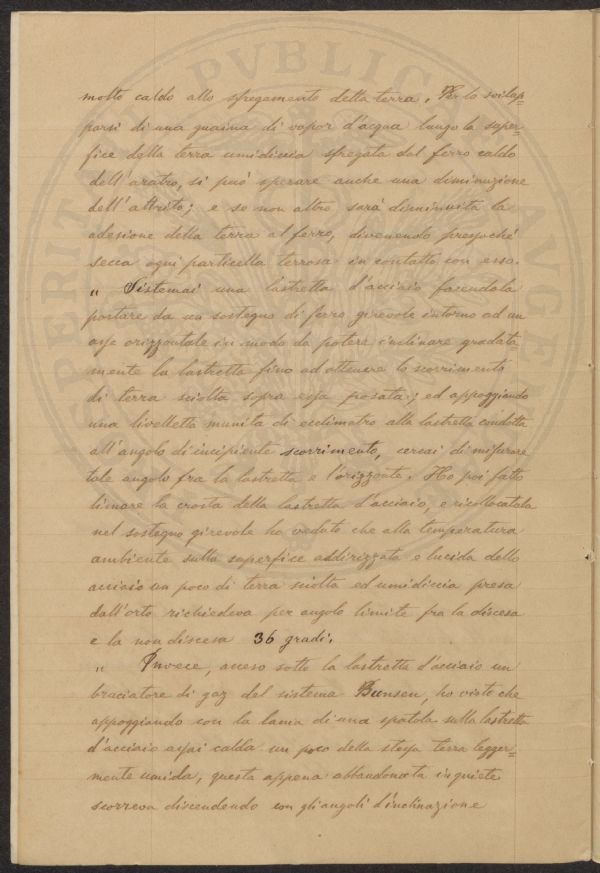 molto caldo allo sfregamento della terra. Per lo svilup-
parsi di una guaina di vapor d'acqua lungo la super-
fice della terra umidiccia sfregata dal ferro caldo
dell'aratro, si può sperare anche una diminuzione
dell'attrito; e se non altro sarà diminuita la
adesione della terra al ferro, divenendo pressoché
secca ogni particella terrosa in contatto con esso.
" Sistemai una lastretta d'acciaio facendola
portare da un sostegno di ferro girevole intorno ad un
asse orizzontale in modo da potere inclinare gradata
mente la lastretta fino ad ottenere lo scorrimento
di terra sciolta sopra essa posata; ed appoggiando
una livelletta munita di ecclimetro alla lastretta condotta
all'angolo di incipiente scorrimento, cercai di misurare
tale angolo fra la lastretta e l'orizzonte. Ho poi fatto
limare la crosta della lastretta d'acciaio, e ricollocatala
nel sostegno girevole ho veduto che alla temperatura
ambiente sulla superfice addirizzata e lucida dello
acciaio un poco di terra sciolta ed umidiccia presa
dall'orto richiedeva per angolo limite fra la discesa
e la non discesa 36 gradi.
" Invece, acceso sotto la lastretta d'acciaio un
braciatore di gaz del sistema Bunsen, ho visto che
appoggiando con la lama di una spatola sulla lastretta
d'acciaio assai calda un poco della stessa terra legger-
mente umida, questa appena abbandonata in quiete
scorreva discendendo con gli angoli d'inclinazione
PVBLICA